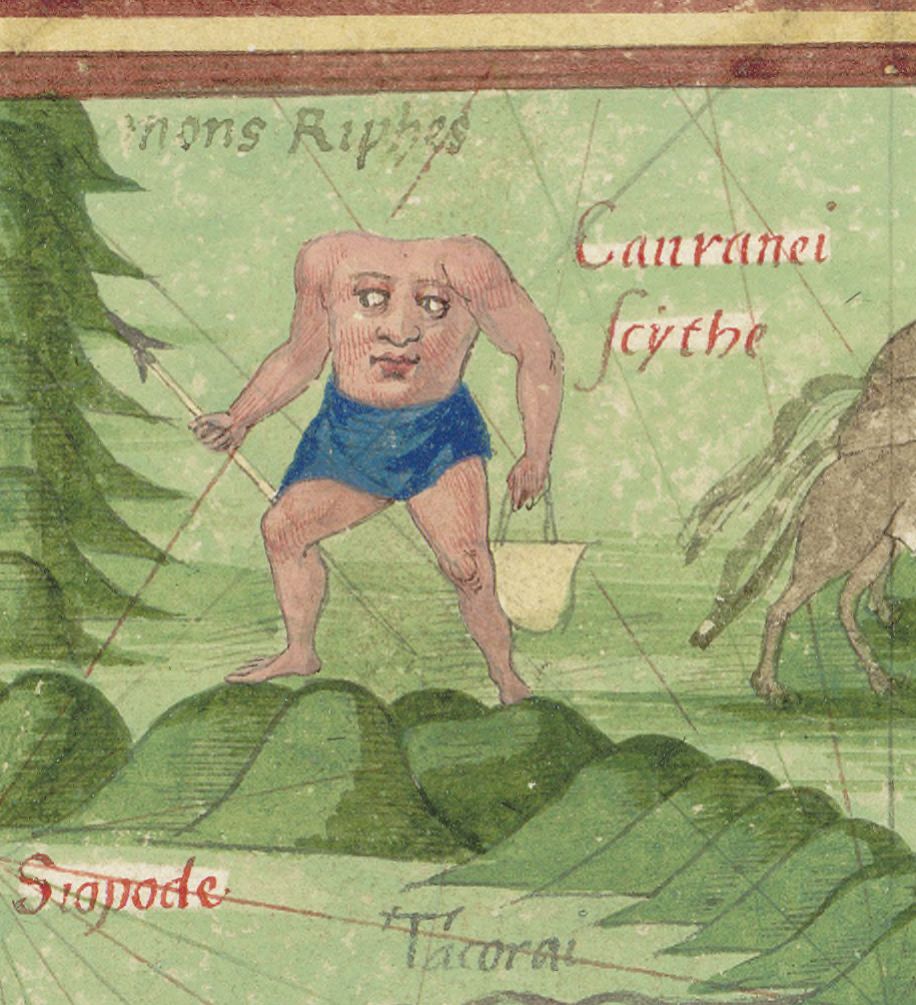 mons Riphes
Cauranei
scythe
Siopode
Tacorai